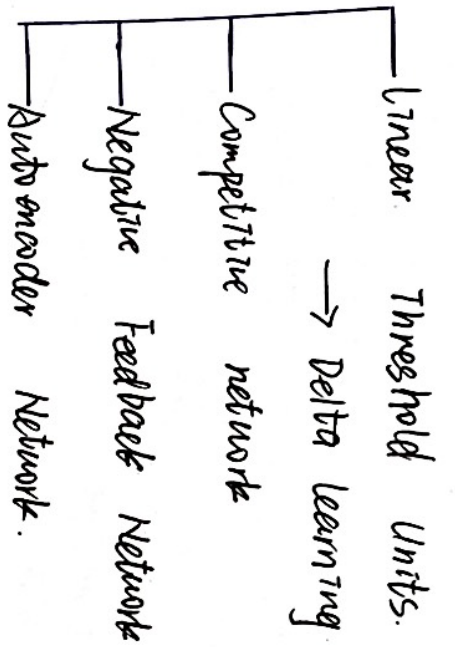 Linear Threshold Units.
→ Delta learning
Competitive network
Negative Feedback Network
Autoencoder Network.